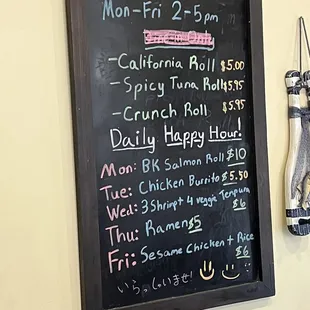 Mon-Fri 2-5pm
Dine-in Only
-California Roll $5.00
-Spicy Tuna Roll $5.95
-Crunch Roll $5.95
Daily Happy Hour!
Mon: BK Salmon Roll $10
Tue: Chicken Burrito $5.50
Wed: 3 Shrimp + 4 veggie Tempura $6
Thu: Ramen $5
Fri: Sesame Chicken + Rice $6
いらっしゃいませ!